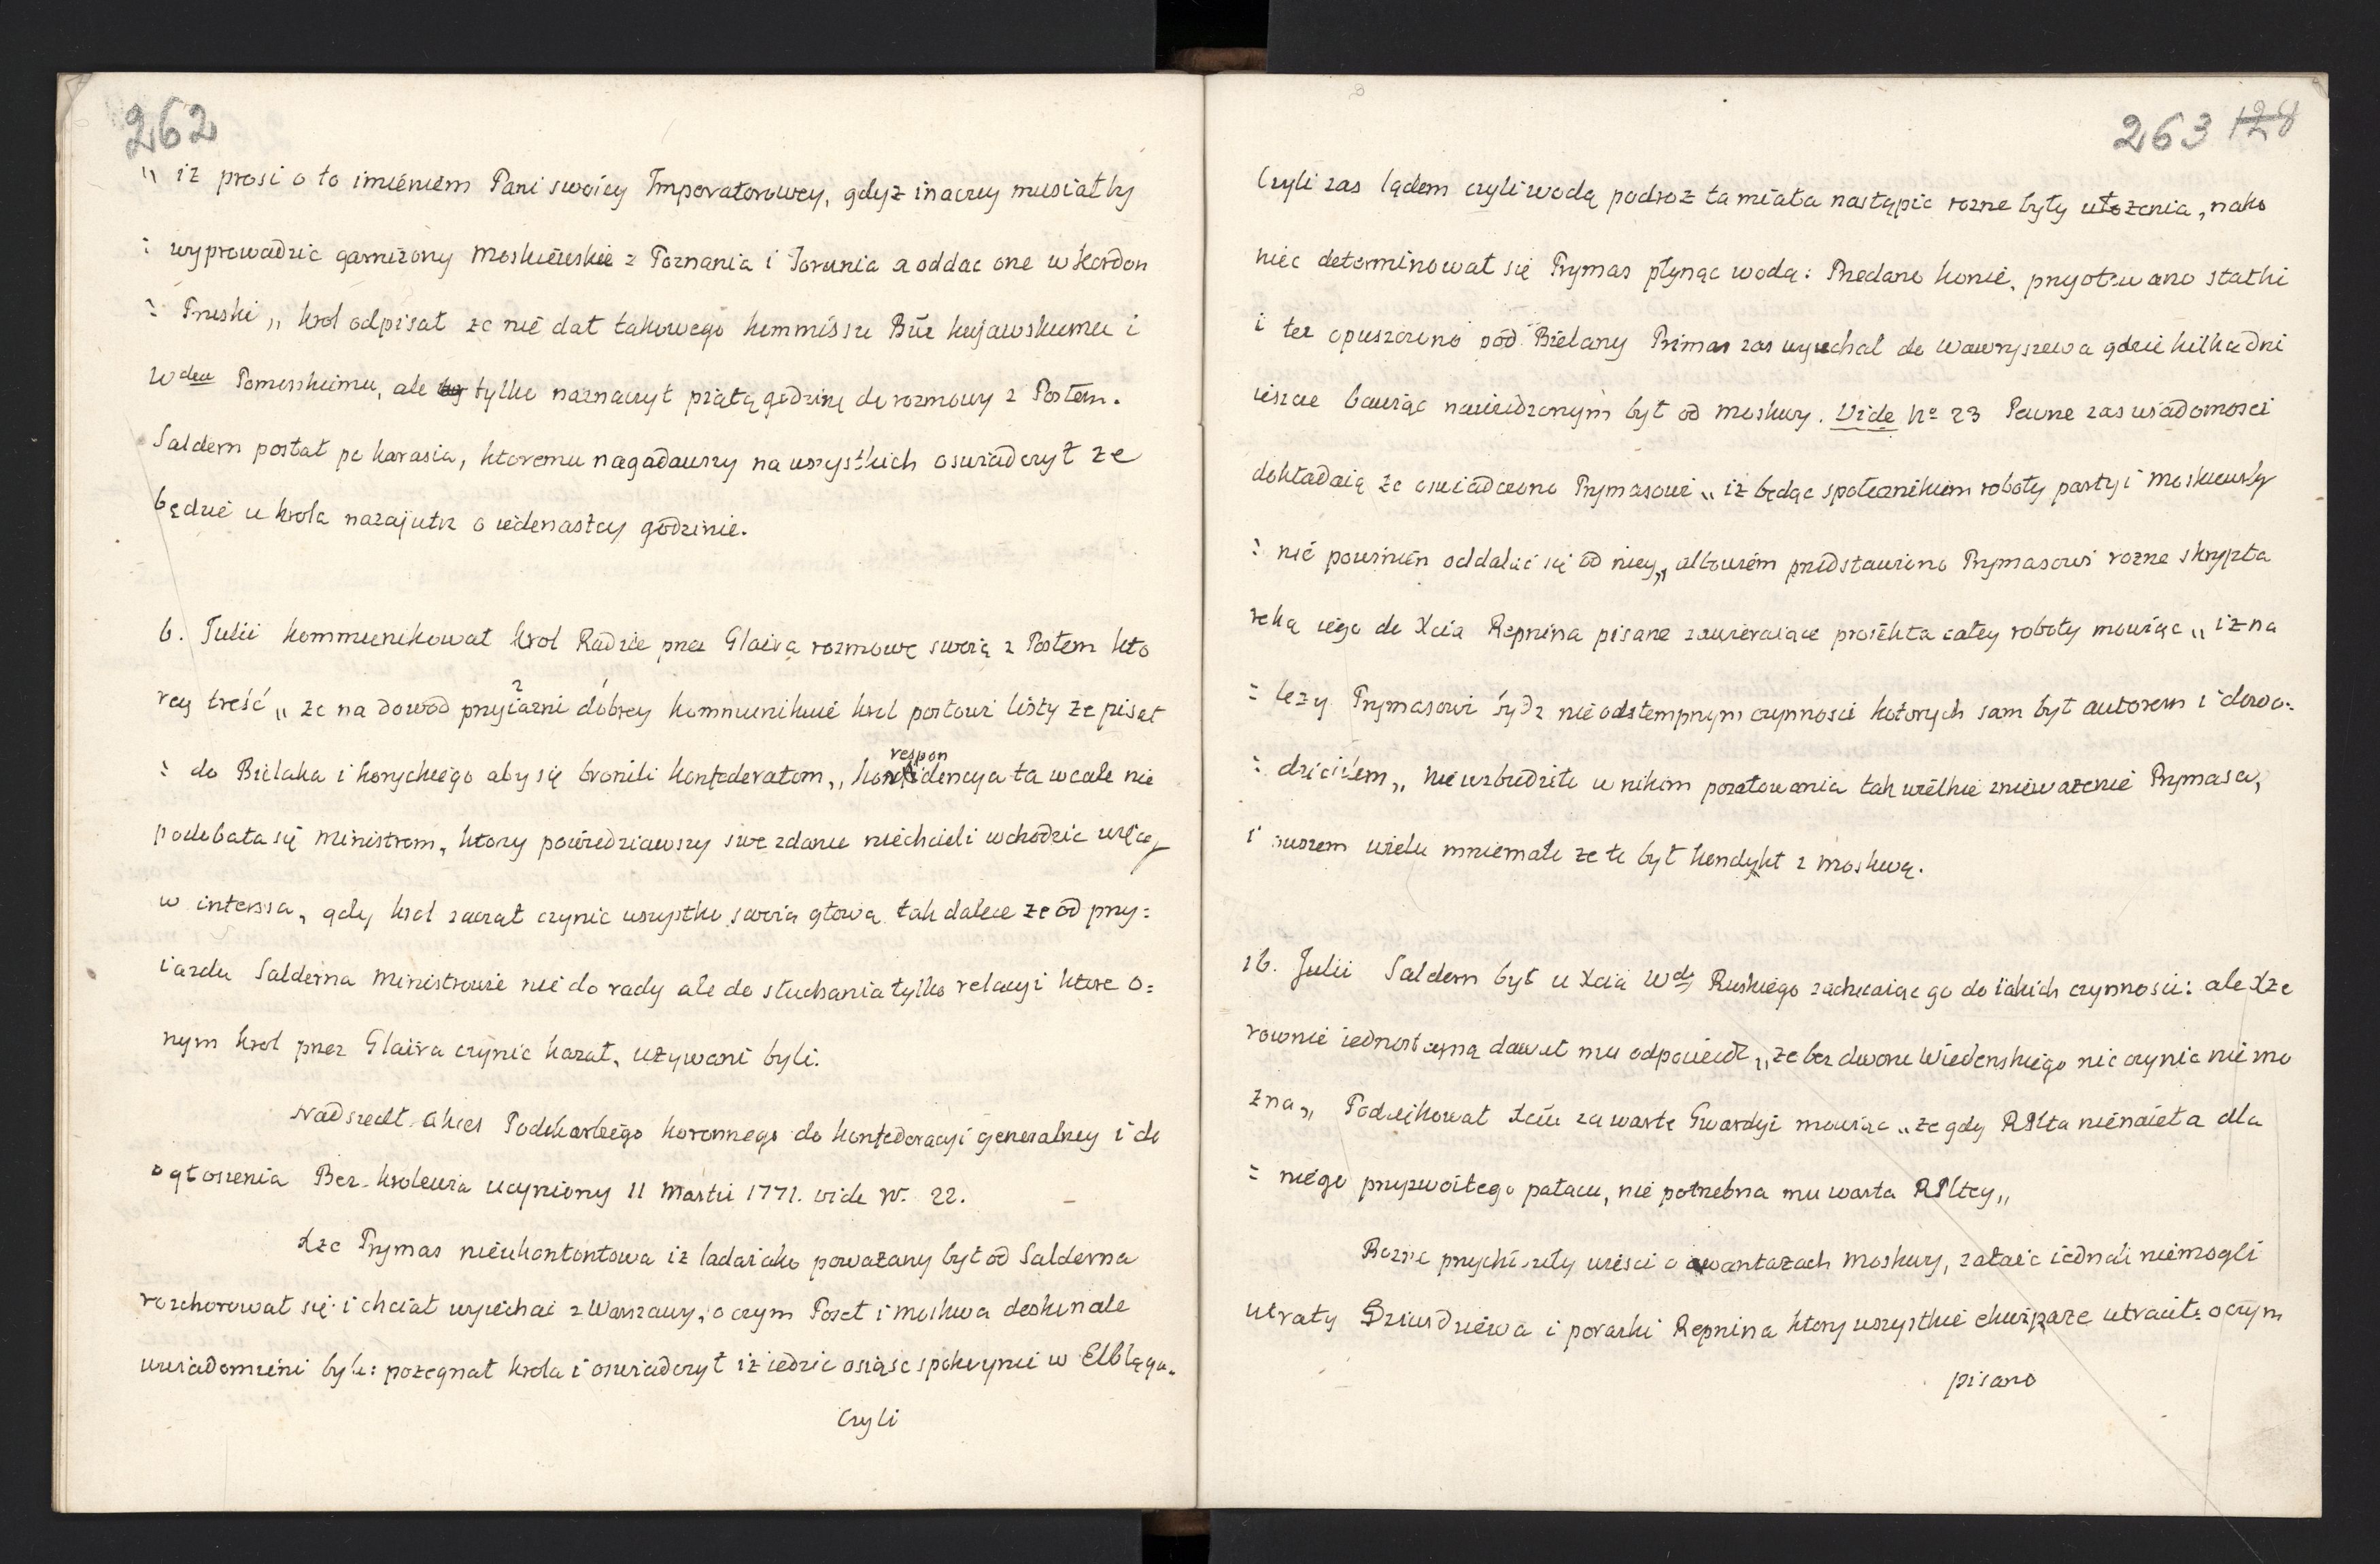 262
„ iz prosi o to imieniem Pani swoiey Imperatorowey, gdyz inaczey musiałby
: wyprowadzic garnizony Moskiewskie z Poznania i Torunia a oddac one w kordon
: Pruski „ krol odpisał ze nie dał takowego kommissu Bīu kujawskiemu i
Wdzie Pomorskiemu, ale tylko naznaczył piątą godzinę do rozmowy z Posłem.
Saldern posłał po karasia, ktoremu nagadawszy na wszystkich oswiadczył ze
będzie u krola nazajutrz o iedenastey godzinie.
6. Julii kommunikował krol Radzie przez Glaira rozmowę swoią z Posłem kto
rey treść „ ze na dowod przyiazni dobrey kommunikuie krol posłowi listy ze pisał
: do Bielaka i koryckiego aby się bronili konfederatom „ korrespondencya ta wcale nie
podobała się ministrom, ktorzy powiedziawszy swe zdanie niechcieli wchodzic więcey
w interssa, gdy krol zaczął czynic wszystko swoią głową tak dalece ze od przy:
iazdu Salderna Ministrowie nie do rady ale do słuchania tylko relacyi ktore o:
nym krol przez Glaira czynic kazał, uzywani byli.
Nadszedł akces Podskarbiego koronnego do konfederacyi generalney i do
ogłoszenia Bez-krolewia uczyniony 11 Martii 1771. vide N. 22.
Xze Prymas nieukontontowa iz ladaiako powazany był od Salderna
rozchorował się i chciał wyiechai z Warszawy, o czym Poseł i Moskwa doskonale
uwiadomieni byli: pozegnał krola i oswiadczył iz iedzie osiąsc spokoynie w Elblągu.
Czyli
263 128
Czyli zas lądem czyli wodą podroz ta miała nastąpic rozne były ułozenia, nako
niec determinował się Prymas płynąc wodą: Przedano konie, przyotowano statki
i te opuszczono pod Bielany Primas zas wyiechał do Wawryszewa gdzie kilka dni
ieszcze bawiąc nawiedzonym był od moskwy. Vide No 23 Pewne zas wiadomosci
dokładaią ze oswiadczono Prymasowi „ iz będąc społecznikiem roboty partyi moskiewsky
: nie powinien oddalać się od niey „ albowiem przedstawiono Prymasowi rozne skrypta
ręką iego do Xcia Repnina pisane zawieraiące proiekta całey roboty mowiąc „ iz na
: lezy Prymasowi bydz nieodstempnym czynnosci ktorych sam był autorem i dowo:
: dzicielem „ nie wzbudziło w nikim pozałowania tak wielkie zniewazenie Prymasa,
i owszem wielu mniemało ze to był kondykt z moskwą.
16. Julii Saldern był u Xcia Wdy Ruskiego zachęcaiąc go do iakich czynnosci: ale Xze
rownie iednostayną dawał mu odpowiedz, „ ze bez dworu Wiedenskiego nic czynic nie mo
zna „ Podziękował Xciu za wartę Gwardyi mowiąc „ ze gdy RPlta nienaieła dla
: niego przyzwoitego pałacu, nie potrzebna mu warta RPltey „
Rozne przychodziły wiesci o awantazach moskwy, zataic iednak niemogli
utraty Dziurdziewa i porazki Repnina ktory wszystkie ekwipaze utracił: o czym
pisano